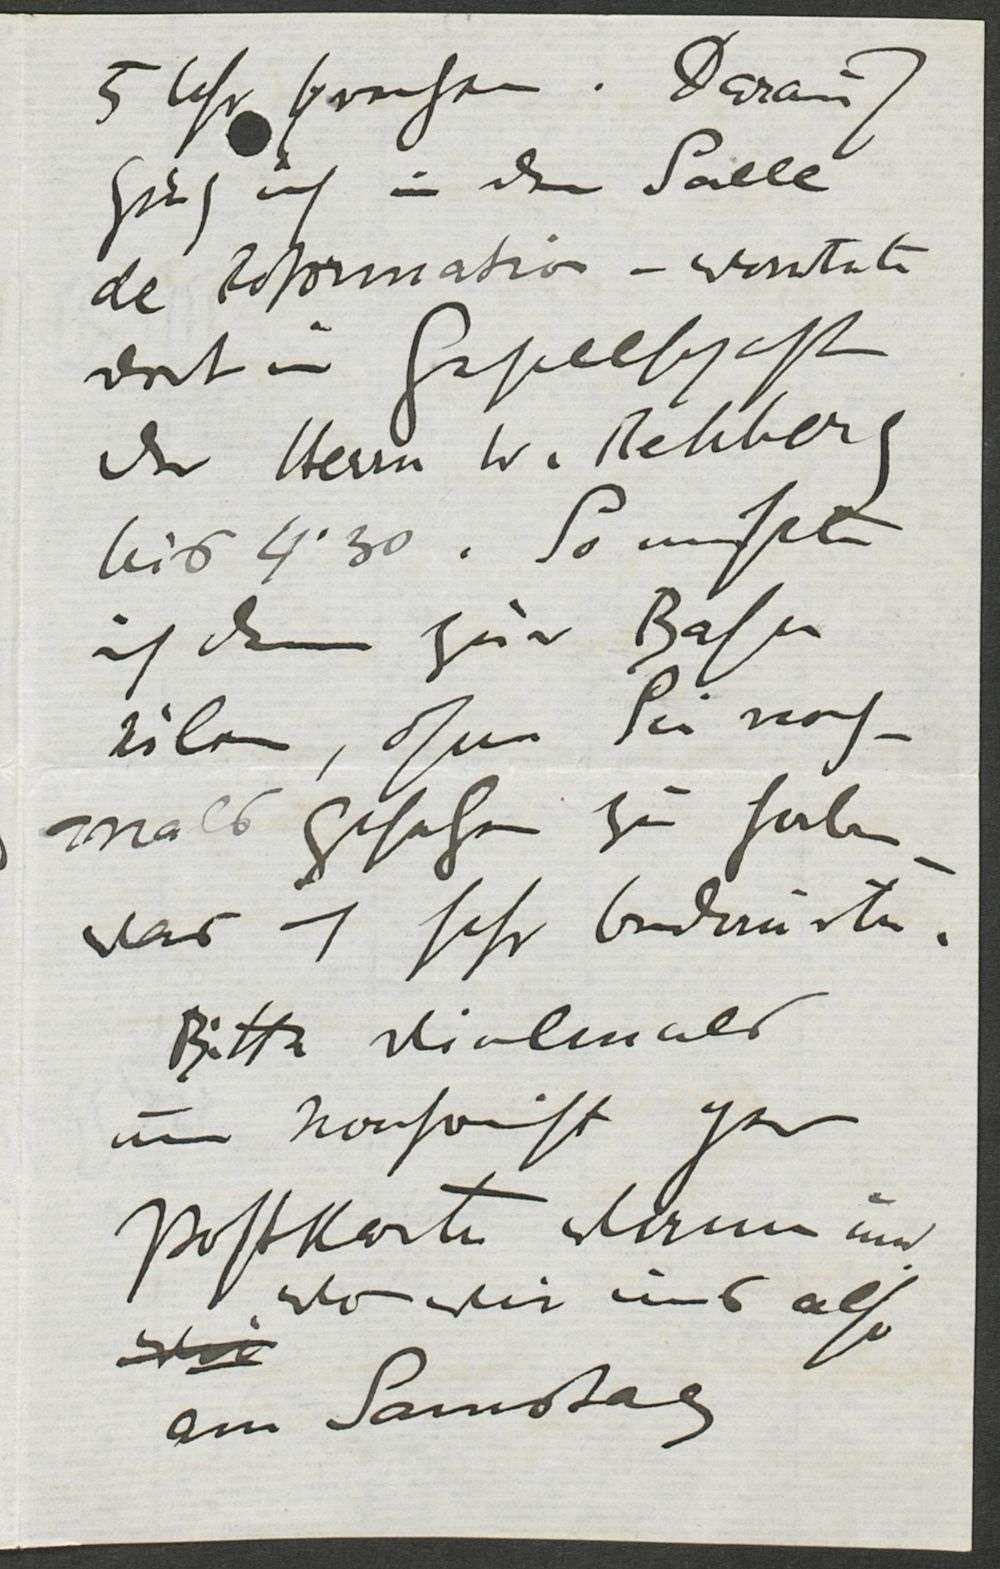 5 Uhr sprechen. Darauf
ging ich in den Salle
de Reformation – wartete
dort in Gesellschaft
der Herrn W. Rehberg
bis 4·30. So musste
ich denn zur Bahn
eilen, ohne Sie noch-
mals gesehen zu haben –
was ich sehr bedauerte.
Bitte vielmals
um Nachricht per
Postkarte wann und
wo wir uns also
am Samstag